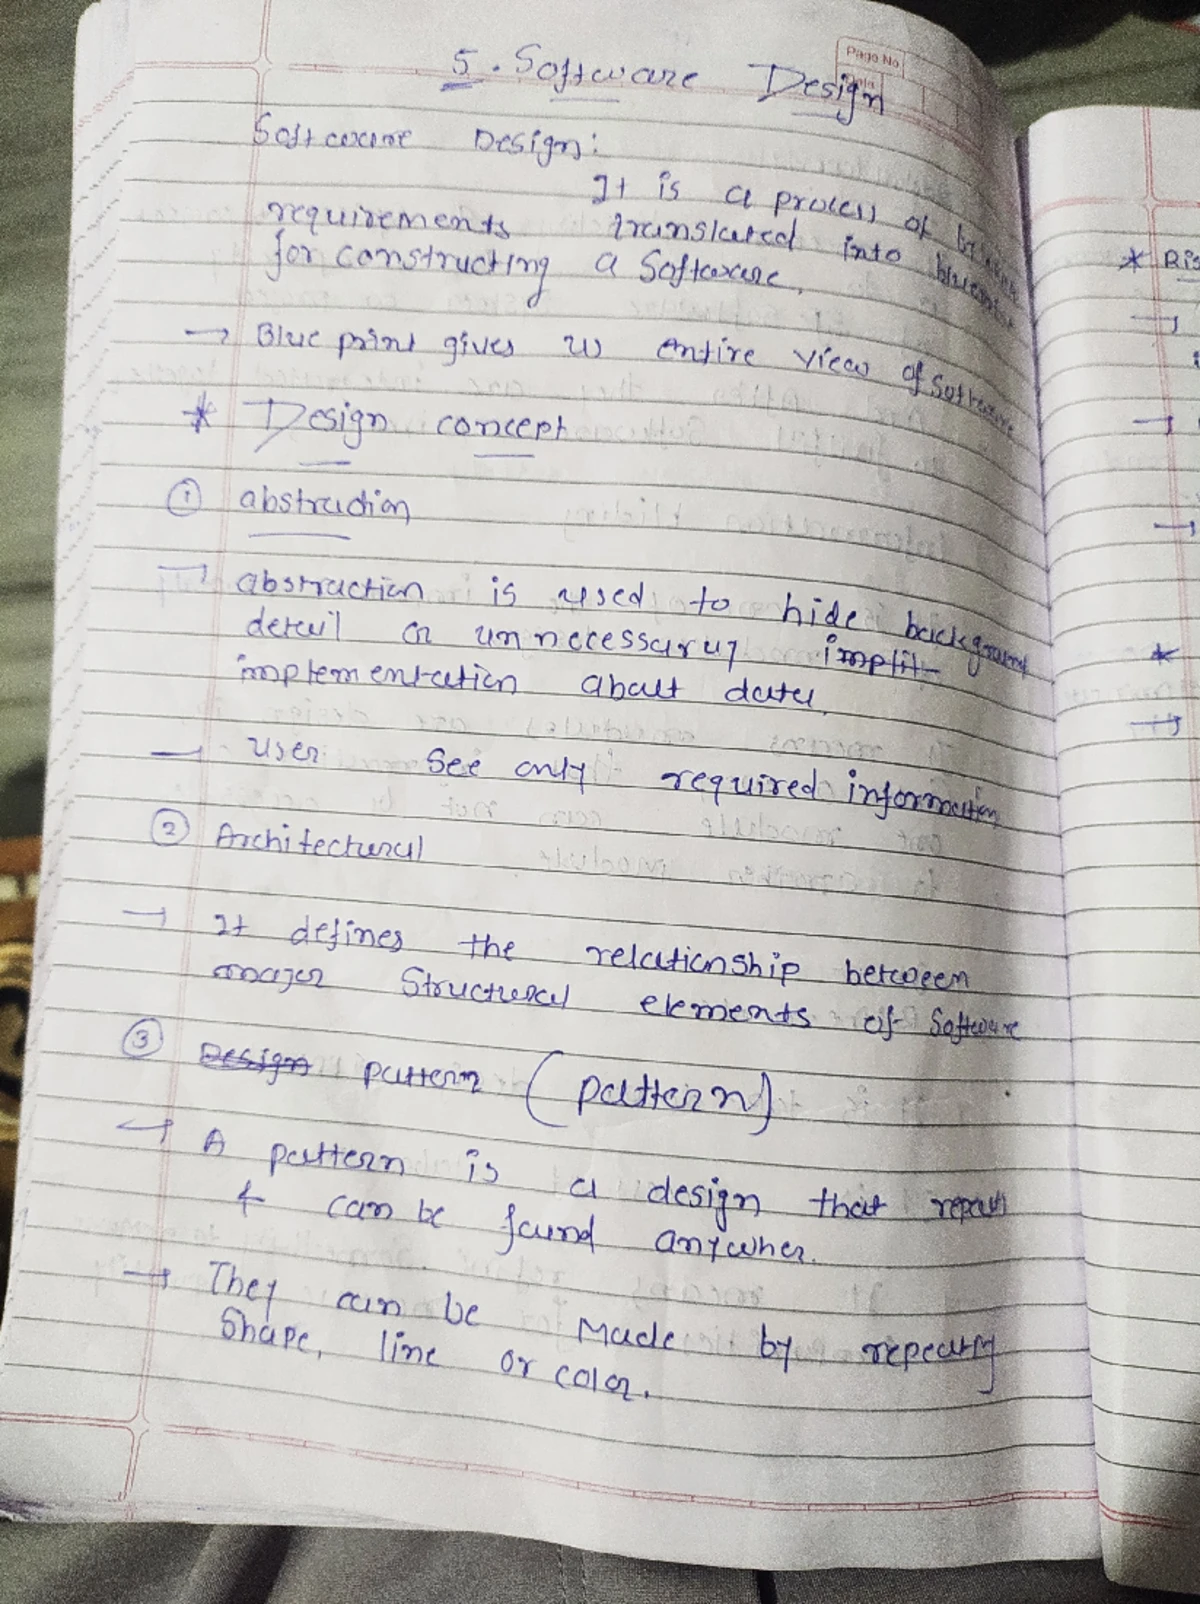 Page No
5. Software Design
Software Design:
It is a process of
requirements translated into blueprint
for constructing a Software.
→ Blue print gives us entire view of Software
* Design concept
① abstraction
→ abstraction is used to hide background
detail or unnecessary implit-
implementation about data.
→ user see only required information
② Architectural
→ It defines the relationship between
major Structural elements of Software
③ Design pattern (pattern)
→ A pattern is a design that repeats
& can be found anywher.
→ They can be Made by repeating
Shape, line or color.
* Ris